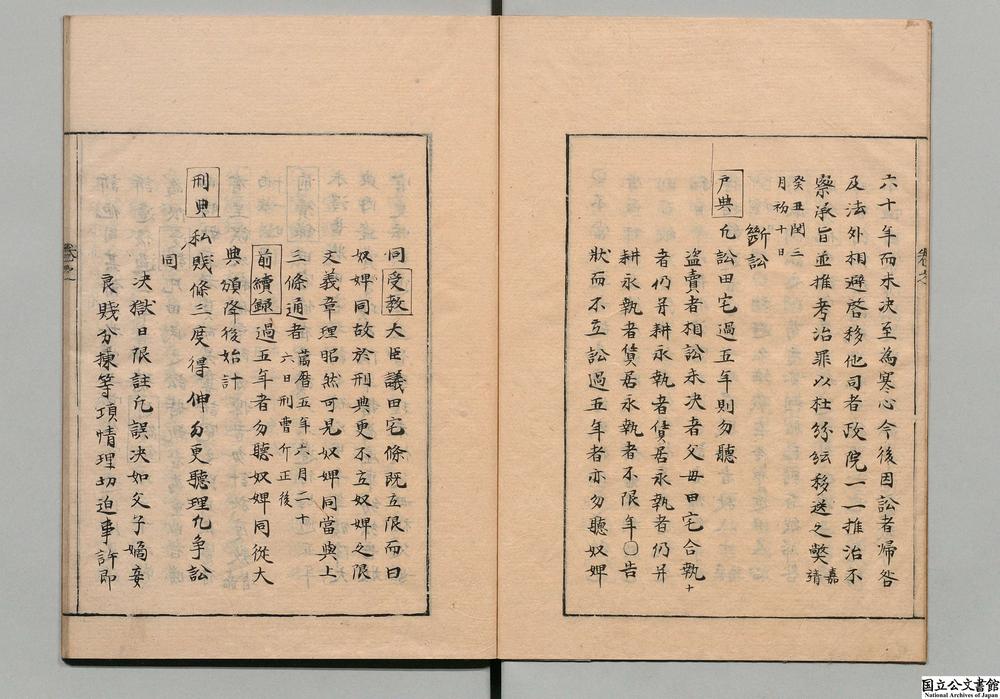 六十年而未決至為寒心今後因訟者歸咎
及法外相避啓移他司者政院一一推治不
察承旨並推考治罪以杜紛紜移送之弊嘉靖
癸丑閏二
月初十日
斷訟
戶典凡訟田宅過五年則勿聽
盜賣者相訟未決者父母田宅合執
者仍并耕永執者賃居永執者仍并
耕永執者賃居永執者不限年○告
狀而不立訟過五年者亦勿聽奴婢
同受教大臣議田宅條既立限而曰
奴婢同故於刑典更不立奴婢之限
文義章理昭然可見奴婢同當與上
三條通者萬曆五年六月二十
六日刑曹介正後
前續錄過五年者勿聽奴婢同從大
典頒降後始計
刑典私賤條三度得伸勿更聽理九爭訟
同
決獄日限註凡誤決如父子嫡妾
良賤分揀等項情理切迫事許即
国立公文書館
National Archives of Japan